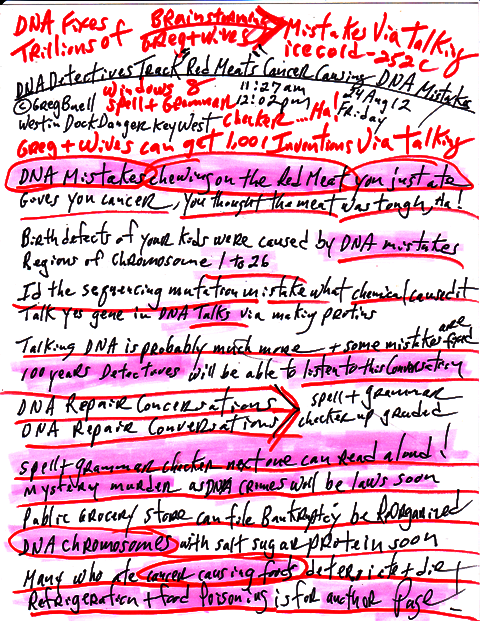 DNA Fixes Brainstorming Mistakes Via Talking
Trillions of Greg + Wives ice cold -252 C
DNA Detectives Track Red Meats Cancer Causing DNA Mistake
Windows 8 11:27am 24 Aug 12
© Greg Buell Spell + Grammar 12:02pm Friday
Westin Dock Danger Key West Checker... Ha!
Greg + Wives can get 1,001 Inventions Via Talking
DNA Mistakes chewing on the Red Meat you just ate
Goves you cancer, you thought the meat was tough, Ha!
Birth defects of your kids were caused by DNA mistakes
Regions of chromosome 1 to 26
Id the sequencing mutation mistake what chemical caused it
Talk yes gene in DNA Talks via making protins
Talking DNA is probably much more + some mistakes are food
100 years Detectaves will be able to listen to this Conversation
DNA Repair Concersations spell + grammar
DNA Repair Conversations checker upgraded
spell + grammar checker next one can read aloud!
Mystery murder as DNA crimes will be laws soon
Public Grocery store can file Bankruptcy be ReOrganized
DNA chromosomes with salt sugar protein soon
Many who ate cancer causing foods + die
Refrigeration + food Poisoning is for another Page!